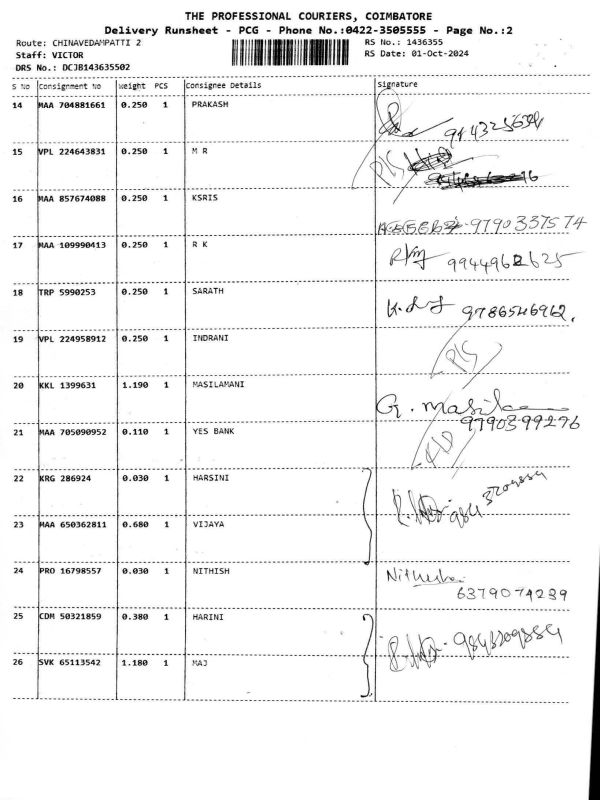 THE PROFESSIONAL COURIERS, COIMBATORE
Delivery Runsheet - PCG - Phone No.:0422-3505555 - Page No.:2
Route: CHINAVEDAMPATTI 2 RS No.: 1436355
Staff: VICTOR RS Date: 01-Oct-2024
DRS No.: DCJB143635502
S No Consignment No Weight PCS Consignee Details Signature
14 MAA 704881661 0.250 1 PRAKASH
15 VPL 224643831 0.250 1 M R
16 MAA 857674088 0.250 1 KSRIS 9790337574
17 MAA 109990413 0.250 1 R K
18 TRP 5990253 0.250 1 SARATH 9786546962.
19 VPL 224958912 0.250 1 INDRANI
20 KKL 1399631 1.190 1 MASILAMANI G. Masila
9790399276
21 MAA 705090952 0.110 1 YES BANK
22 KRG 286924 0.030 1 HARSINI
23 MAA 650362811 0.680 1 VIJAYA
24 PRO 16798557 0.030 1 NITHISH
6379074239
25 CDM 50321859 0.380 1 HARINI
26 SVK 65113542 1.180 1 MAJ